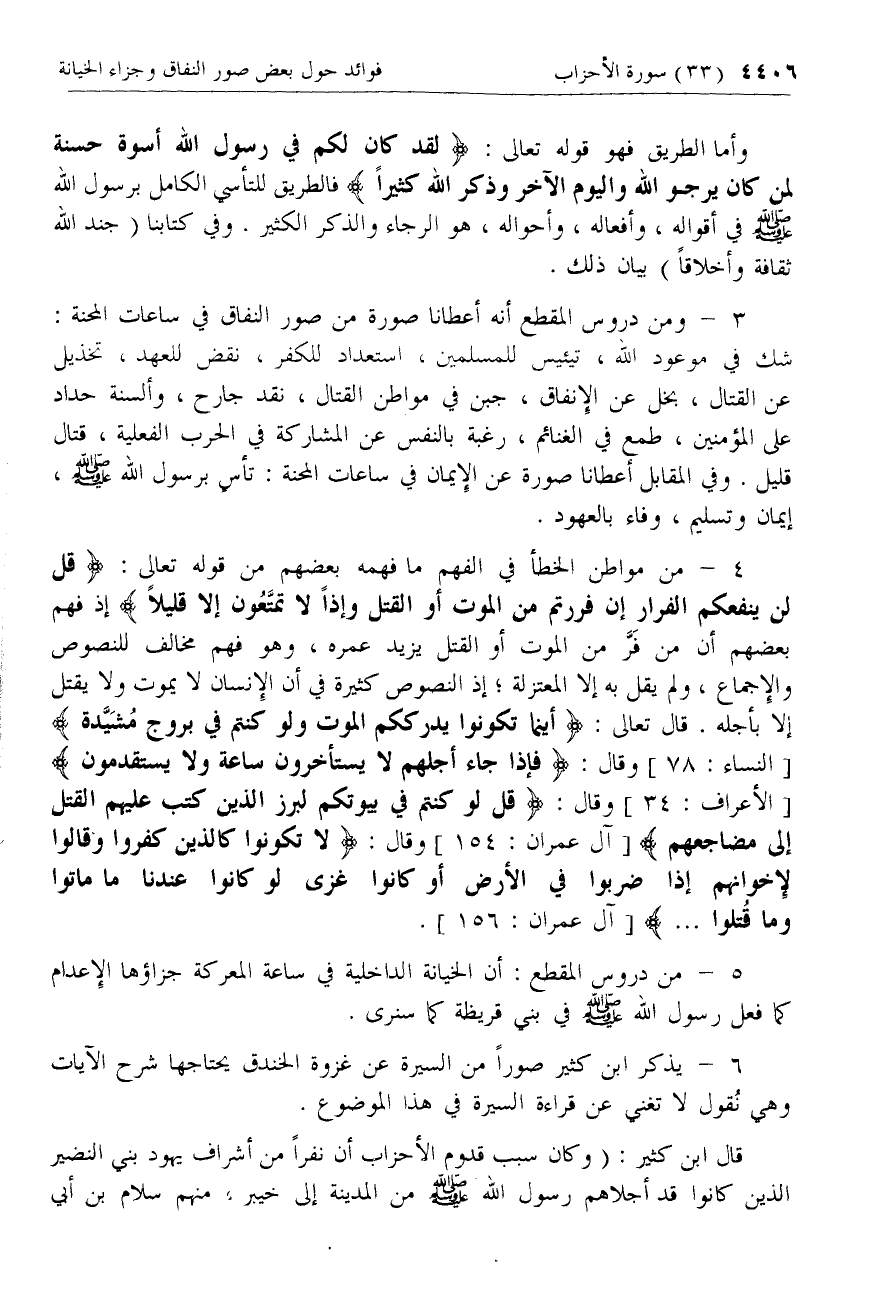 ٤٤٠٦ (٣٣) سورة الأحزاب فوائد حول بعض صور النفاق وجزاء الخيانة
وأما الطريق فهو قوله تعالى : ﴿ لقد كان لكم في رسول الله أسوة حسنة
لمن كان يرجو الله واليوم الآخر وذكر الله كثيراً ﴾ فالطريق للتأسي الكامل برسول الله
ﷺ في أقواله ، وأفعاله ، وأحواله ، هو الرجاء والذكر الكثير . وفي كتابنا ( جند الله
ثقافة وأخلاقاً ) بيان ذلك .
٣ – ومن دروس المقطع أنه أعطانا صورة من صور النفاق في ساعات المحنة :
شك في موعود الله ، تيئيس للمسلمين ، استعداد للكفر ، نقض للعهد ، تخذيل
عن القتال ، بخل عن الإنفاق ، جبن في مواطن القتال ، نقد جارح ، وألسنة حداد
على المؤمنين ، طمع في الغنائم ، رغبة بالنفس عن المشاركة في الحرب الفعلية ، قتال
قليل . وفي المقابل أعطانا صورة عن الإيمان في ساعات المحنة : تأسٍ برسول الله ﷺ ،
إيمان وتسليم ، وفاء بالعهود .
٤ – من مواطن الخطأ في الفهم ما فهمه بعضهم من قوله تعالى : ﴿ قل
لن ينفعكم الفرار إن فررتم من الموت أو القتل وإذاً لا تمتَّعُون إلا قليلاً ﴾ إذ فهم
بعضهم أن من فَرَّ من الموت أو القتل يزيد عمره ، وهو فهم مخالف للنصوص
والإجماع ، ولم يقل به إلا المعتزلة ؛ إذ النصوص كثيرة في أن الإنسان لا يموت ولا يقتل
إلا بأجله . قال تعالى : ﴿ أينما تكونوا يدرككم الموت ولو كنتم في بروج مُشيَّدة ﴾
[ النساء : ٧٨ ] وقال : ﴿ فإذا جاء أجلهم لا يستأخرون ساعة ولا يستقدمون ﴾
[ الأعراف : ٣٤ ] وقال : ﴿ قل لو كنتم في بيوتكم لبرز الذين كتب عليهم القتل
إلى مضاجعهم ﴾ [ آل عمران : ١٥٤ ] وقال : ﴿ لا تكونوا كالذين كفروا وقالوا
لإخوانهم إذا ضربوا في الأرض أو كانوا غزى لو كانوا عندنا ما ماتوا
وما قُتلوا ... ﴾ [ آل عمران : ١٥٦ ] .
٥ – من دروس المقطع : أن الخيانة الداخلية في ساعة المعركة جزاؤها الإعدام
كما فعل رسول الله ﷺ في بني قريظة كما سنرى .
٦ – يذكر ابن كثير صوراً من السيرة عن غزوة الخندق يحتاجها شرح الآيات
وهي نُقول لا تغني عن قراءة السيرة في هذا الموضوع .
قال ابن كثير : ( وكان سبب قدوم الأحزاب أن نفراً من أشراف يهود بني النضير
الذين كانوا قد أجلاهم رسول الله ﷺ من المدينة إلى خيبر ، منهم سلام بن أبي